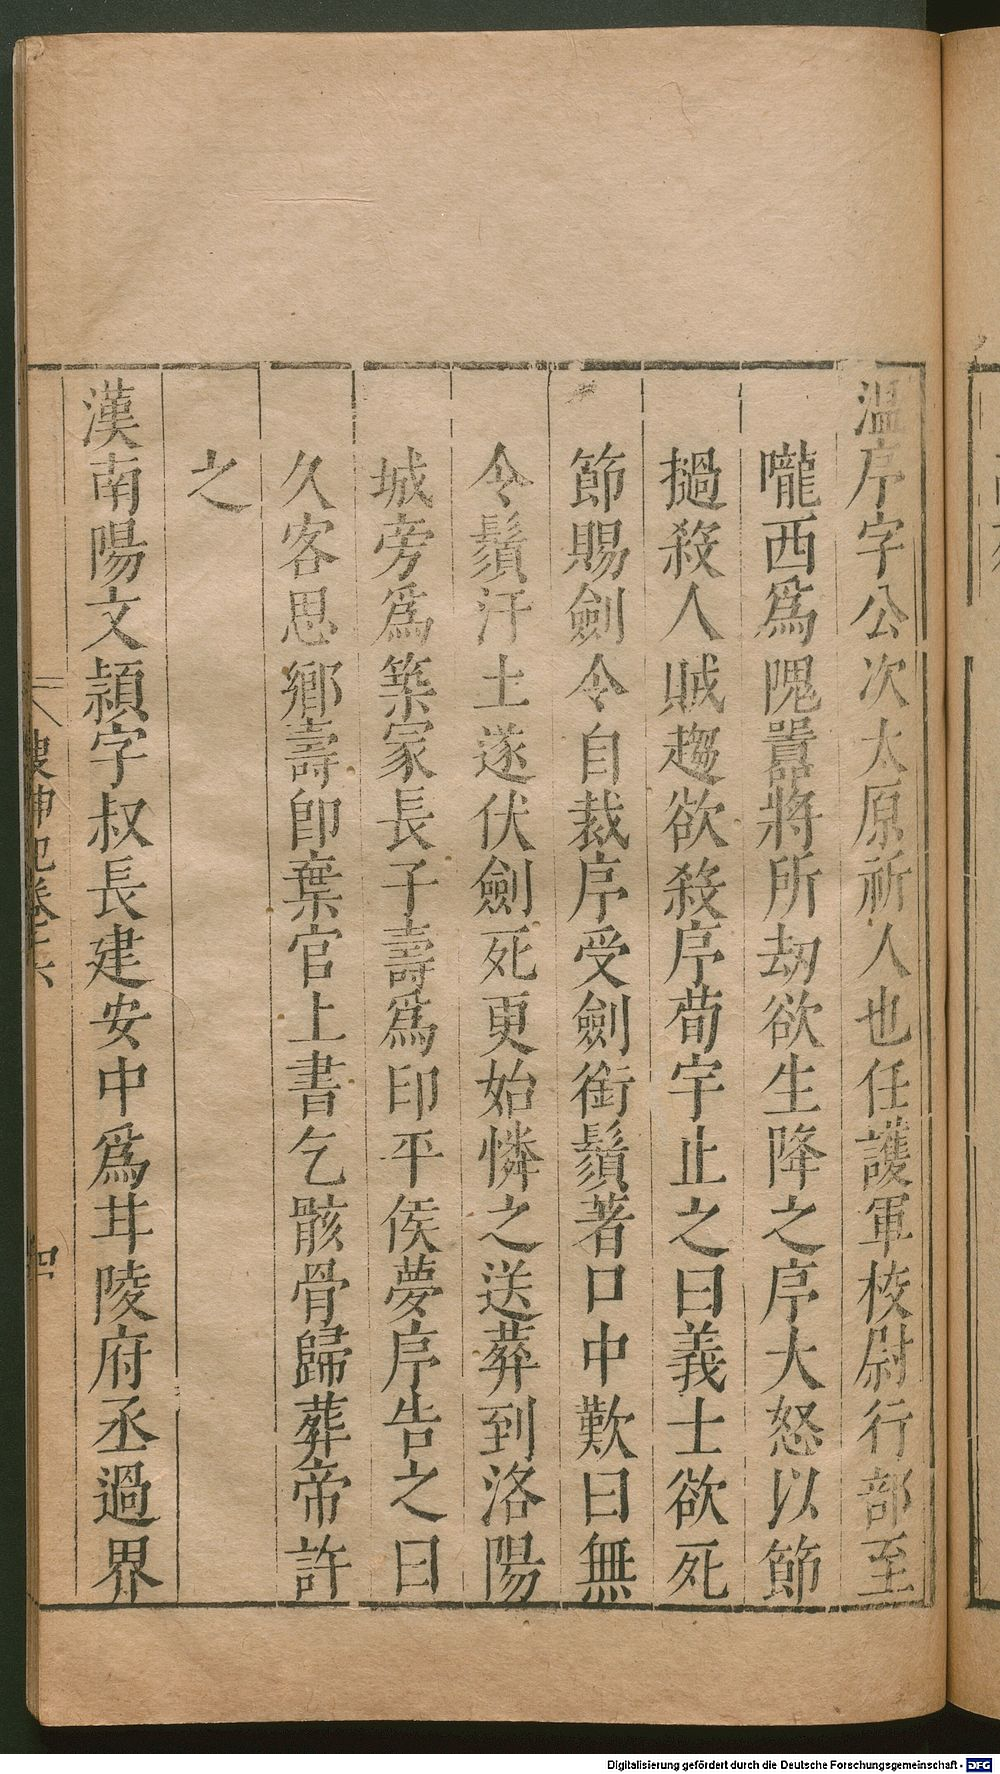 溫序字公次太原祈人也任護軍校尉行部至
嚨西爲隗囂將所劫欲生降之序大怒以節
撾殺人賊趨欲殺序荀宇止之曰義士欲死
節賜劍令自裁序受劍銜鬚著口中歎曰無
令鬚汗土遂伏劍死更始憐之送葬到洛陽
城旁爲築冢長子壽爲印平侯夢序告之曰
久客思鄉壽即棄官上書乞骸骨歸葬帝許
之
漢南陽文頴字叔長建安中爲甘陵府丞過界
搜神記卷十六
四
Digitalisierung gefördert durch die Deutsche Forschungsgemeinschaft - DFG